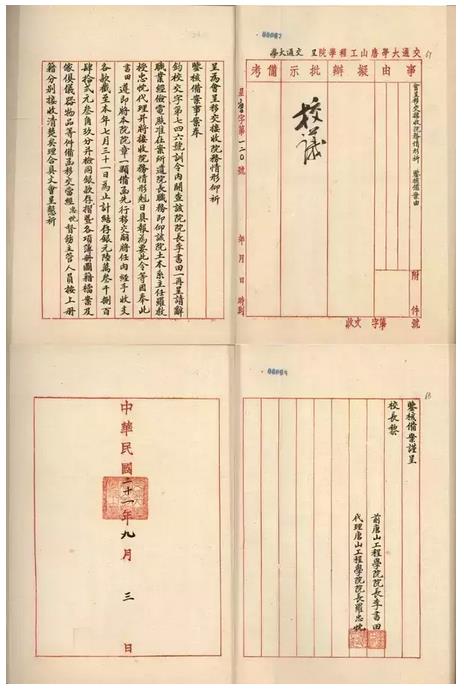 交通大學唐山工程學院呈 交通大學
事由
擬辦
批示
備考
會呈移交接收院務情形祈 鑒核備案由
附件
校議
收文 字第 號
呈唐字第一二〇號 年 月 日 時到
呈為會呈移交接收院務情形仰祈
鑒核備案事案奉
鈞校交字第七四六號訓令內開查該院院長李書田一再呈請辭
職業經檢電照准在案所遺院長職務即仰該院土木系主任羅教
授忠忱代理并將接收院務情形尅日具報為要此令等因奉此
書田遵即將本院院章一顆備函先行移交嗣將任內經手收支
各款截至本年七月三十一日為止計結存銀元陸萬叁千捌百
肆拾弍元叁角玖分并檢同銀款存摺暨各項簿冊圖籍檔案及
傢俱儀器物品等件備函移交當經忠忱督飭主管人員按上冊
籍分別接收清楚理合具文會呈懇祈
鑒核備案謹呈
校長黎
前唐山工程學院院長李書田
代理唐山工程學院院長羅忠忱
中華民國二十一年九月三日